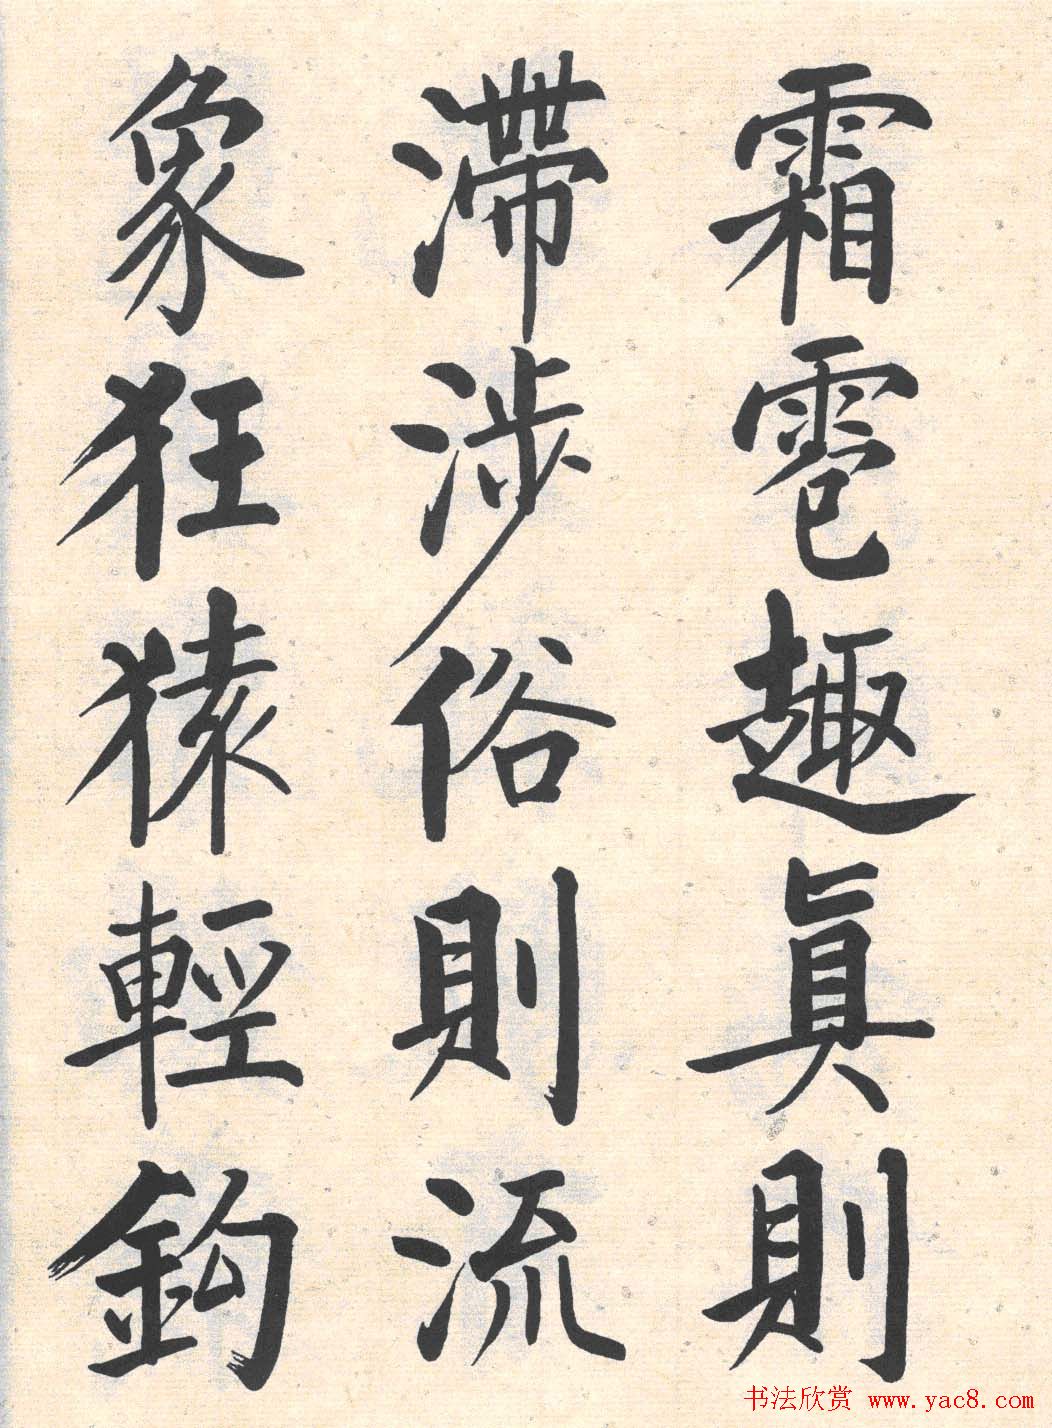 霜雹趣真則
滞涉俗則流
象狂猿輕鈎
书法欣赏 www.yac8.com